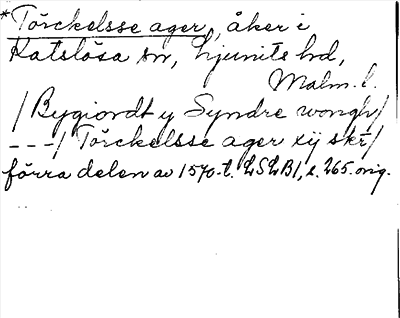 *Törckelsse ager, åker i
Katslösa sn, Ljunits hd,
Malm. l.
/Bygiordt y Syndre wongh/
---/ Törckelsse ager xij skr/
förra delen av 1570-t. LSLB1, s. 265. orig.